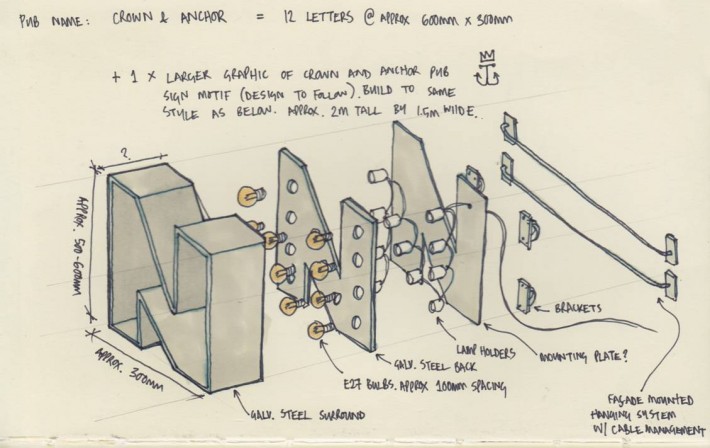 PUB NAME: CROWN & ANCHOR = 12 LETTERS @ APPROX 600MM X 300MM
+ 1 X LARGER GRAPHIC OF CROWN AND ANCHOR PUB
SIGN MOTIF (DESIGN TO FOLLOW). BUILD TO SAME
STYLE AS BELOW. APPROX. 2M TALL BY 1.5M WIIDE.
?
APPROX. 500-600MM
APPROX. 300MM
BRACKETS
LAMP HOLDERS
MOUNTING PLATE?
GALV. STEEL BACK
E27 BULBS. APPROX 100MM SPACING
GALV. STEEL SURROUND
FAÇADE MOUNTED
HANGING SYSTEM
W/ CABLE MANAGEMENT